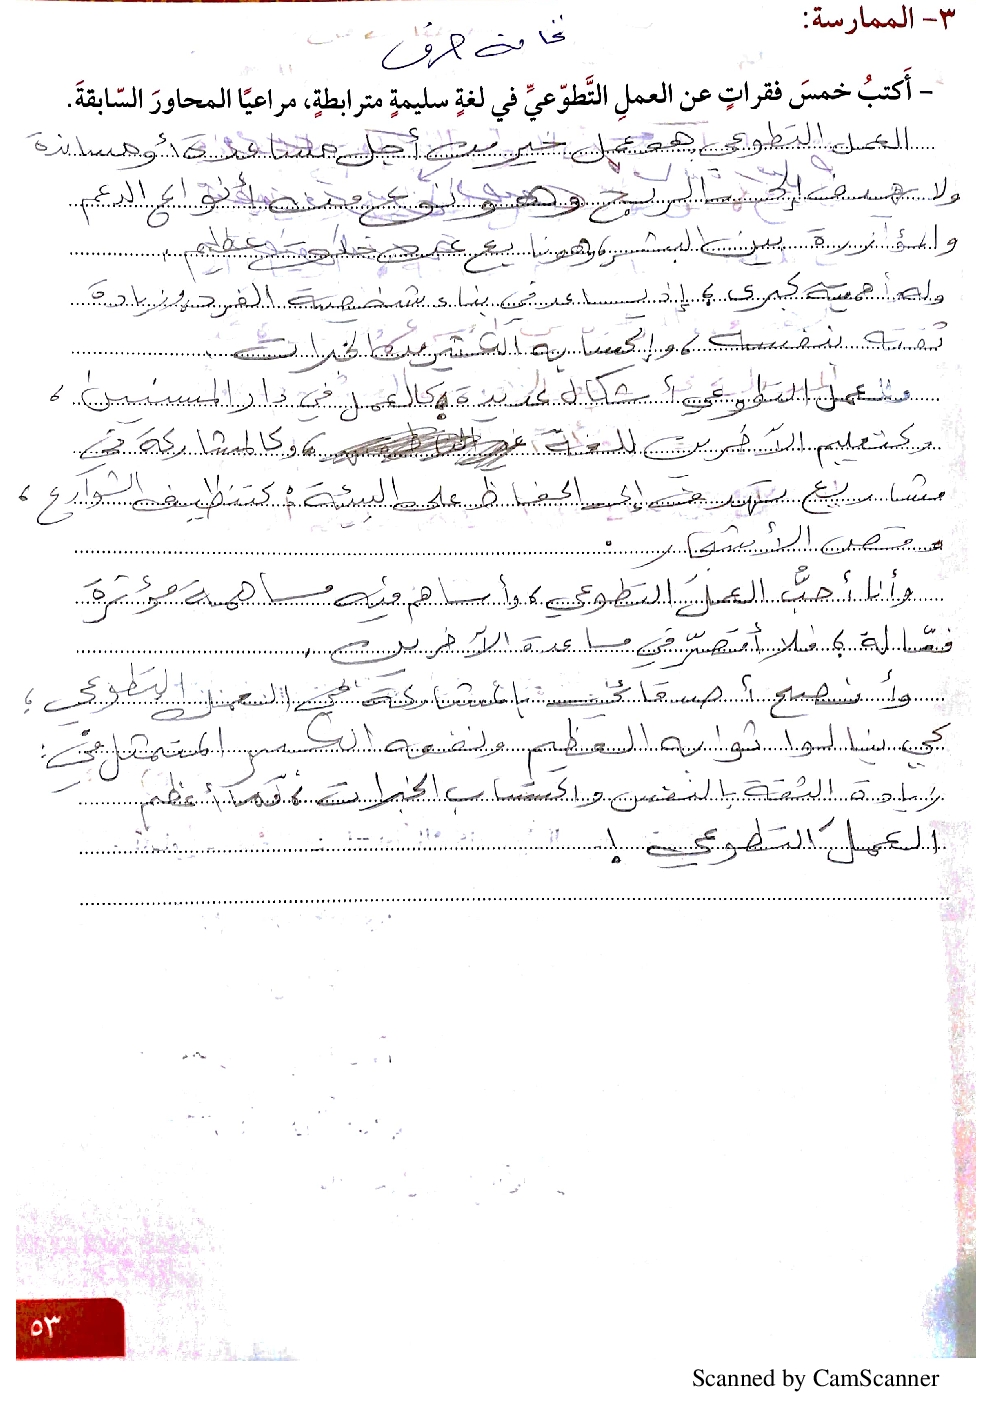 ٣- الممارسة:
- أَكتبُ خمسَ فقراتٍ عن العملِ التَّطوّعيِّ في لغةٍ سليمةٍ مترابطةٍ، مراعيًا المحاورَ السّابقةَ.
العمل التطوعي هو عمل خيري من أجل مساعدة أو مساندة
ولا يهدف إلى الربح وهو نوع من أنواع الدعم
والمؤازرة بين البشر، وهو نابع عن خلق عظيم.
وله أهمية كبرى؛ إذ يساعد في بناء شخصية الفرد، وزيادة
ثقته بنفسه، وإكسابه الكثير من الخبرات.
وللعمل التطوعي أشكال عديدة؛ كالعمل في دار المسنين،
وكتعليم الآخرين للغة ، وكالمشاركة في
مشاريع تهدف إلى الحفاظ على البيئة؛ كتنظيف الشوارع،
و الأشجار.
وأنا أحبُّ العملَ التطوعي، وأساهم فيه مساهمة مؤثرة
فعّالة؛ فلا أقصّر في مساعدة الآخرين.
وأنصح أصدقائي بالمشاركة في العمل التطوعي؛
كي ينالوا ثوابه العظيم ونفعه الكبير المتمثل في:
زيادة الثقة بالنفس واكتساب الخبرات، فما أعظمَ
العملَ التطوعي!
٥٣
Scanned by CamScanner